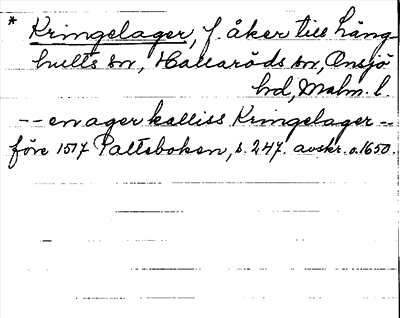 * Kringelager, f. åker till Häng-
hults sn, Hallaröds sn, Onsjö
hd, Malm. l.
-- en ager kalliss Kringelager --
före 1517 Palteboken, s. 247. avskr. o. 1650.